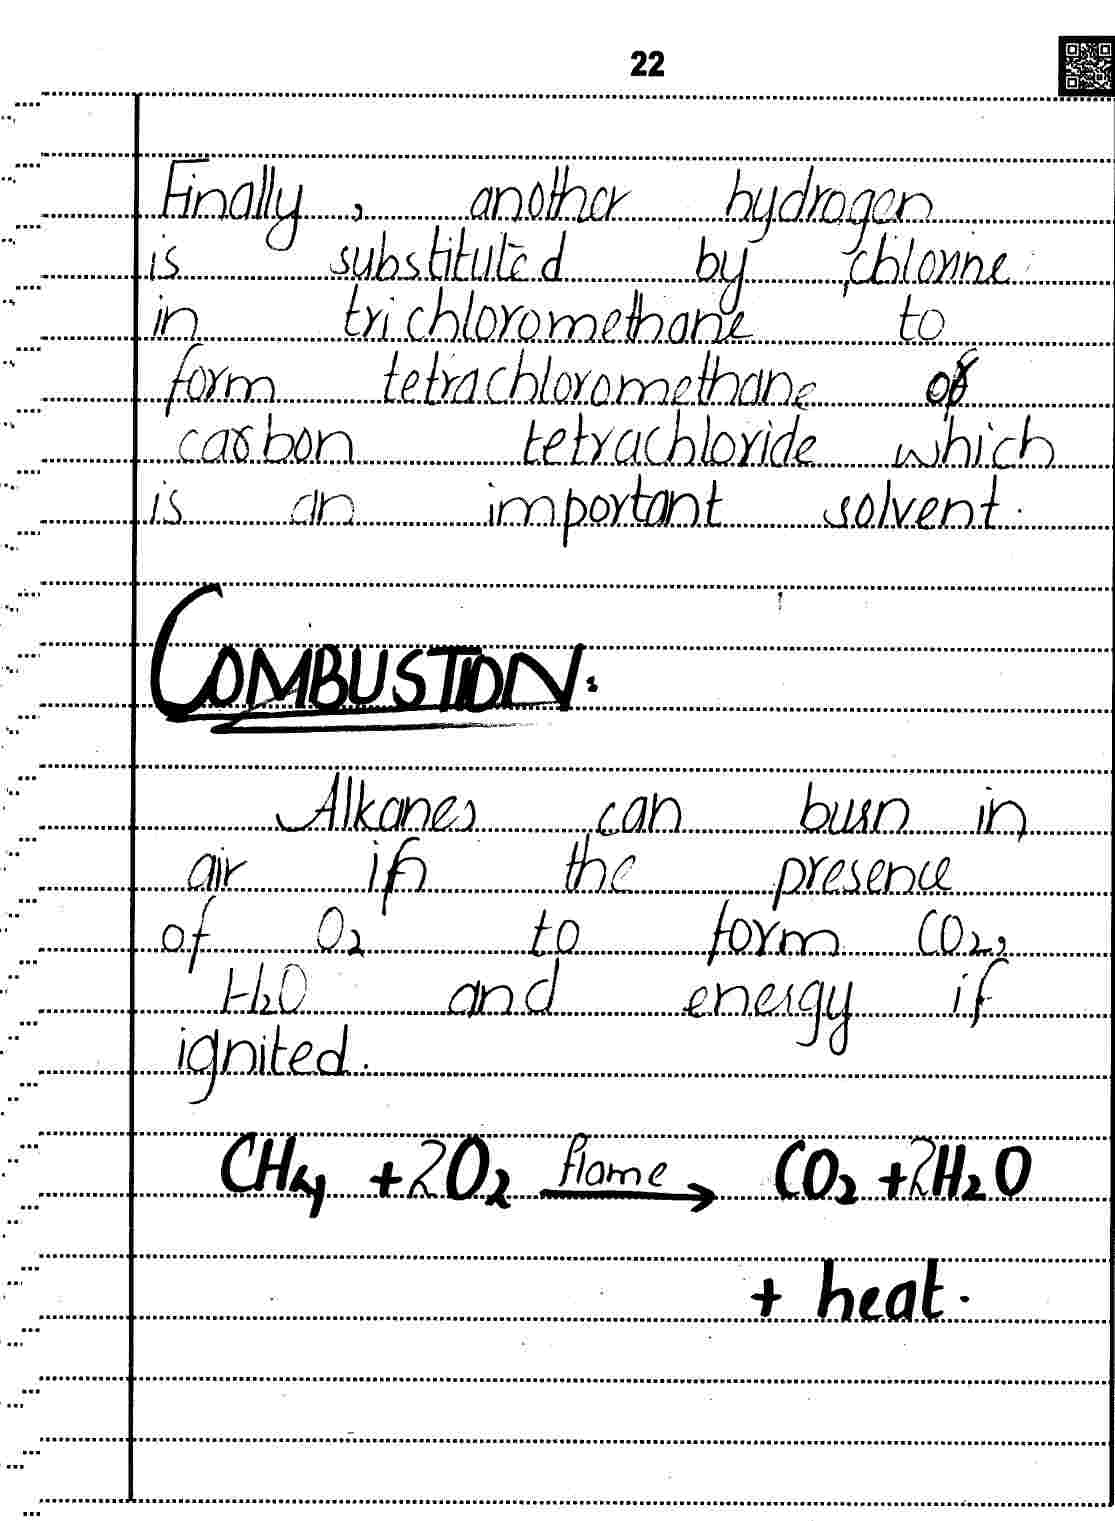 22
Finally, another hydrogen
is substituted by chlorine
in trichloromethane to
form tetrachloromethane or
carbon tetrachloride which
is an important solvent.
COMBUSTION:
Alkanes can burn in
air in the presence
of O₂ to form CO₂,
H₂O and energy if
ignited.
CH₄ + 2O₂ flame → CO₂ + 2H₂O
+ heat.